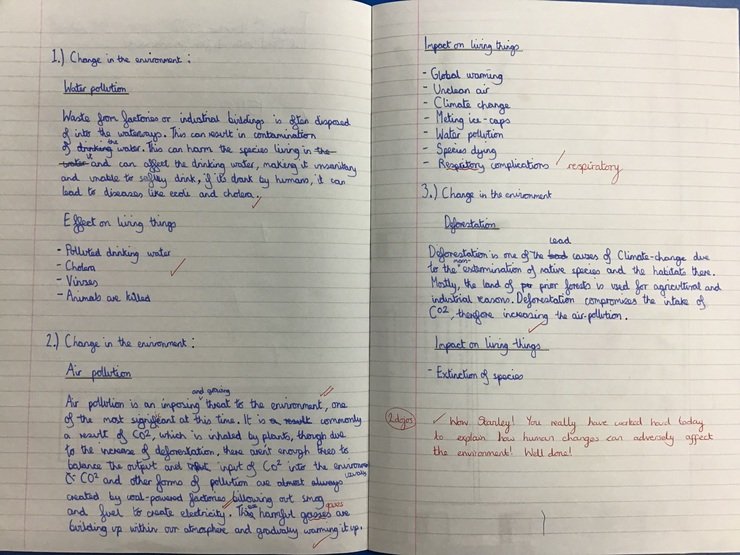 1.) Change in the environment :
Water pollution
Waste from factories or industrial buildings is often disposed
of into the waterways. This can result in contamination
of drinking the water. This can harm the species living in the
water it and can affect the drinking water, making it unsanitary
and unable to safley drink, if it's drank by humans, it can
lead to diseases like ecoli and cholera.
Effect on living things
- Polluted drinking water
- Cholera
- Viruses
- Animals are killed
2.) Change in the environment :
Air pollution
and growing
Air pollution is an imposing threat to the environment, one
of the most significant at this time. It is a result commonly
a result of CO2, which is inhaled by plants, though due
to the increase of deforestation, there arent enough trees to
balance the output and input of CO2 into the environment
CO2 and other forms of pollution are almost always
created by coal-powered factories billowing out smog
and fuel to create electricity. These harmful gasses are gases
building up within our atmosphere and gradually warming it up.
Impact on living things
- Global warming
- Unclean air
- Climate change
- Melting ice-caps
- Water pollution
- Species dying
- Respitory complications / respiratory
3.) Change in the environment
Deforestation
lead
Deforestation is one of the lead causes of Climate-change due
to the extermination of native species and the habitats there.
Mostly, the land of prior forests is used for agricultural and
industrial reasons. Deforestation compromizes the intake of
CO2, therefore increasing the air-pollution.
Impact on living things
- Extinction of species
2 dojos
Wow Stanley! You really have worked hard today
to explain how human changes can adversely affect
the environment! Well done!